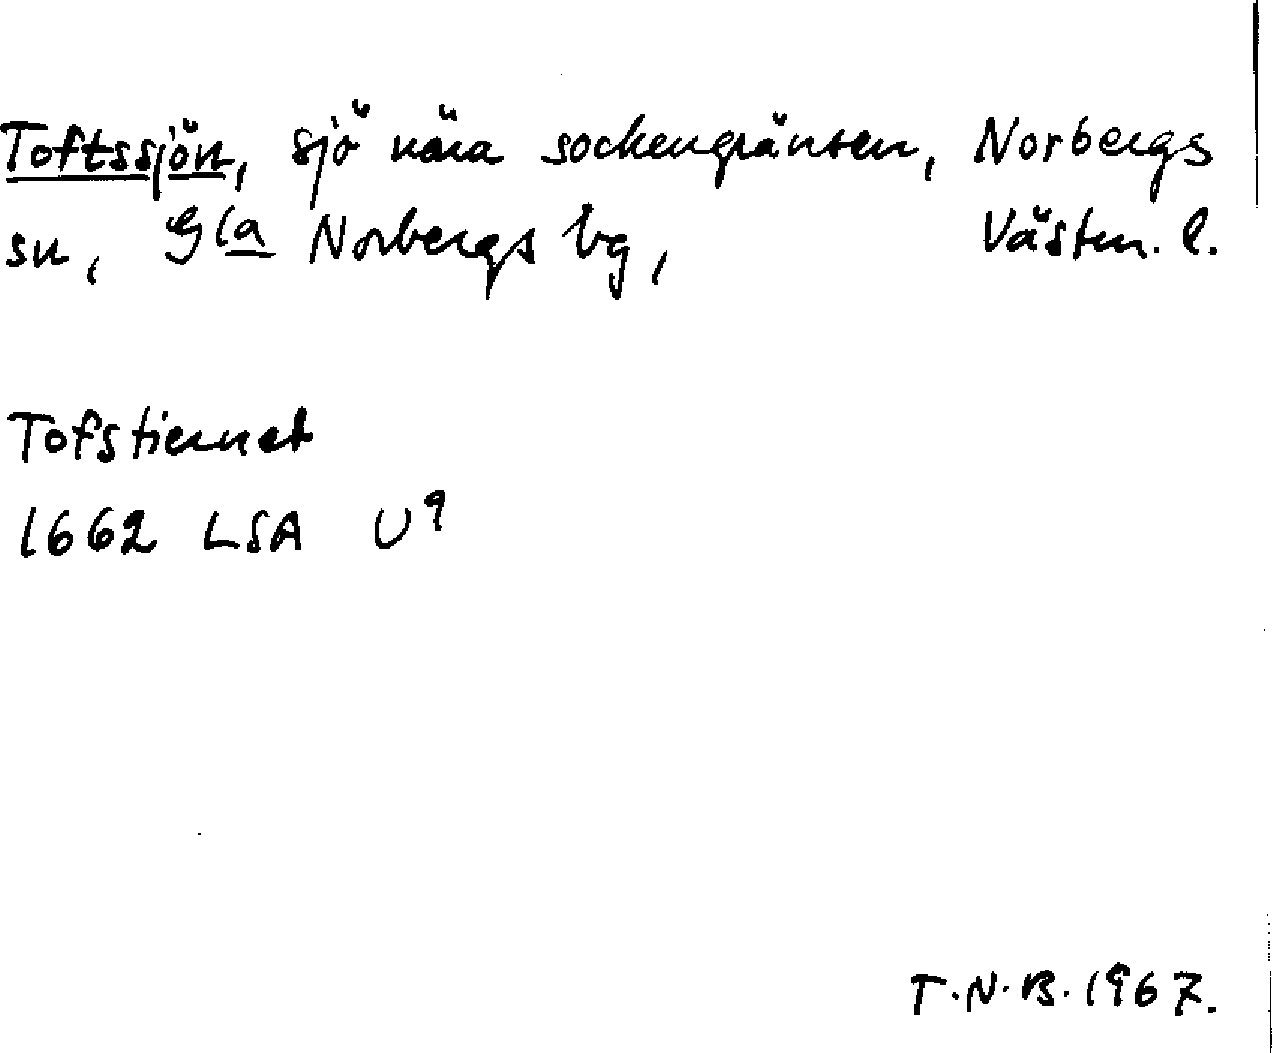 Toftssjön, sjö nära sockengränsen, Norbergs
sn, Gla Norbergs bg, Västm. l.
Tofstiernet
1662 LSA U9
T.N.B. 1967.